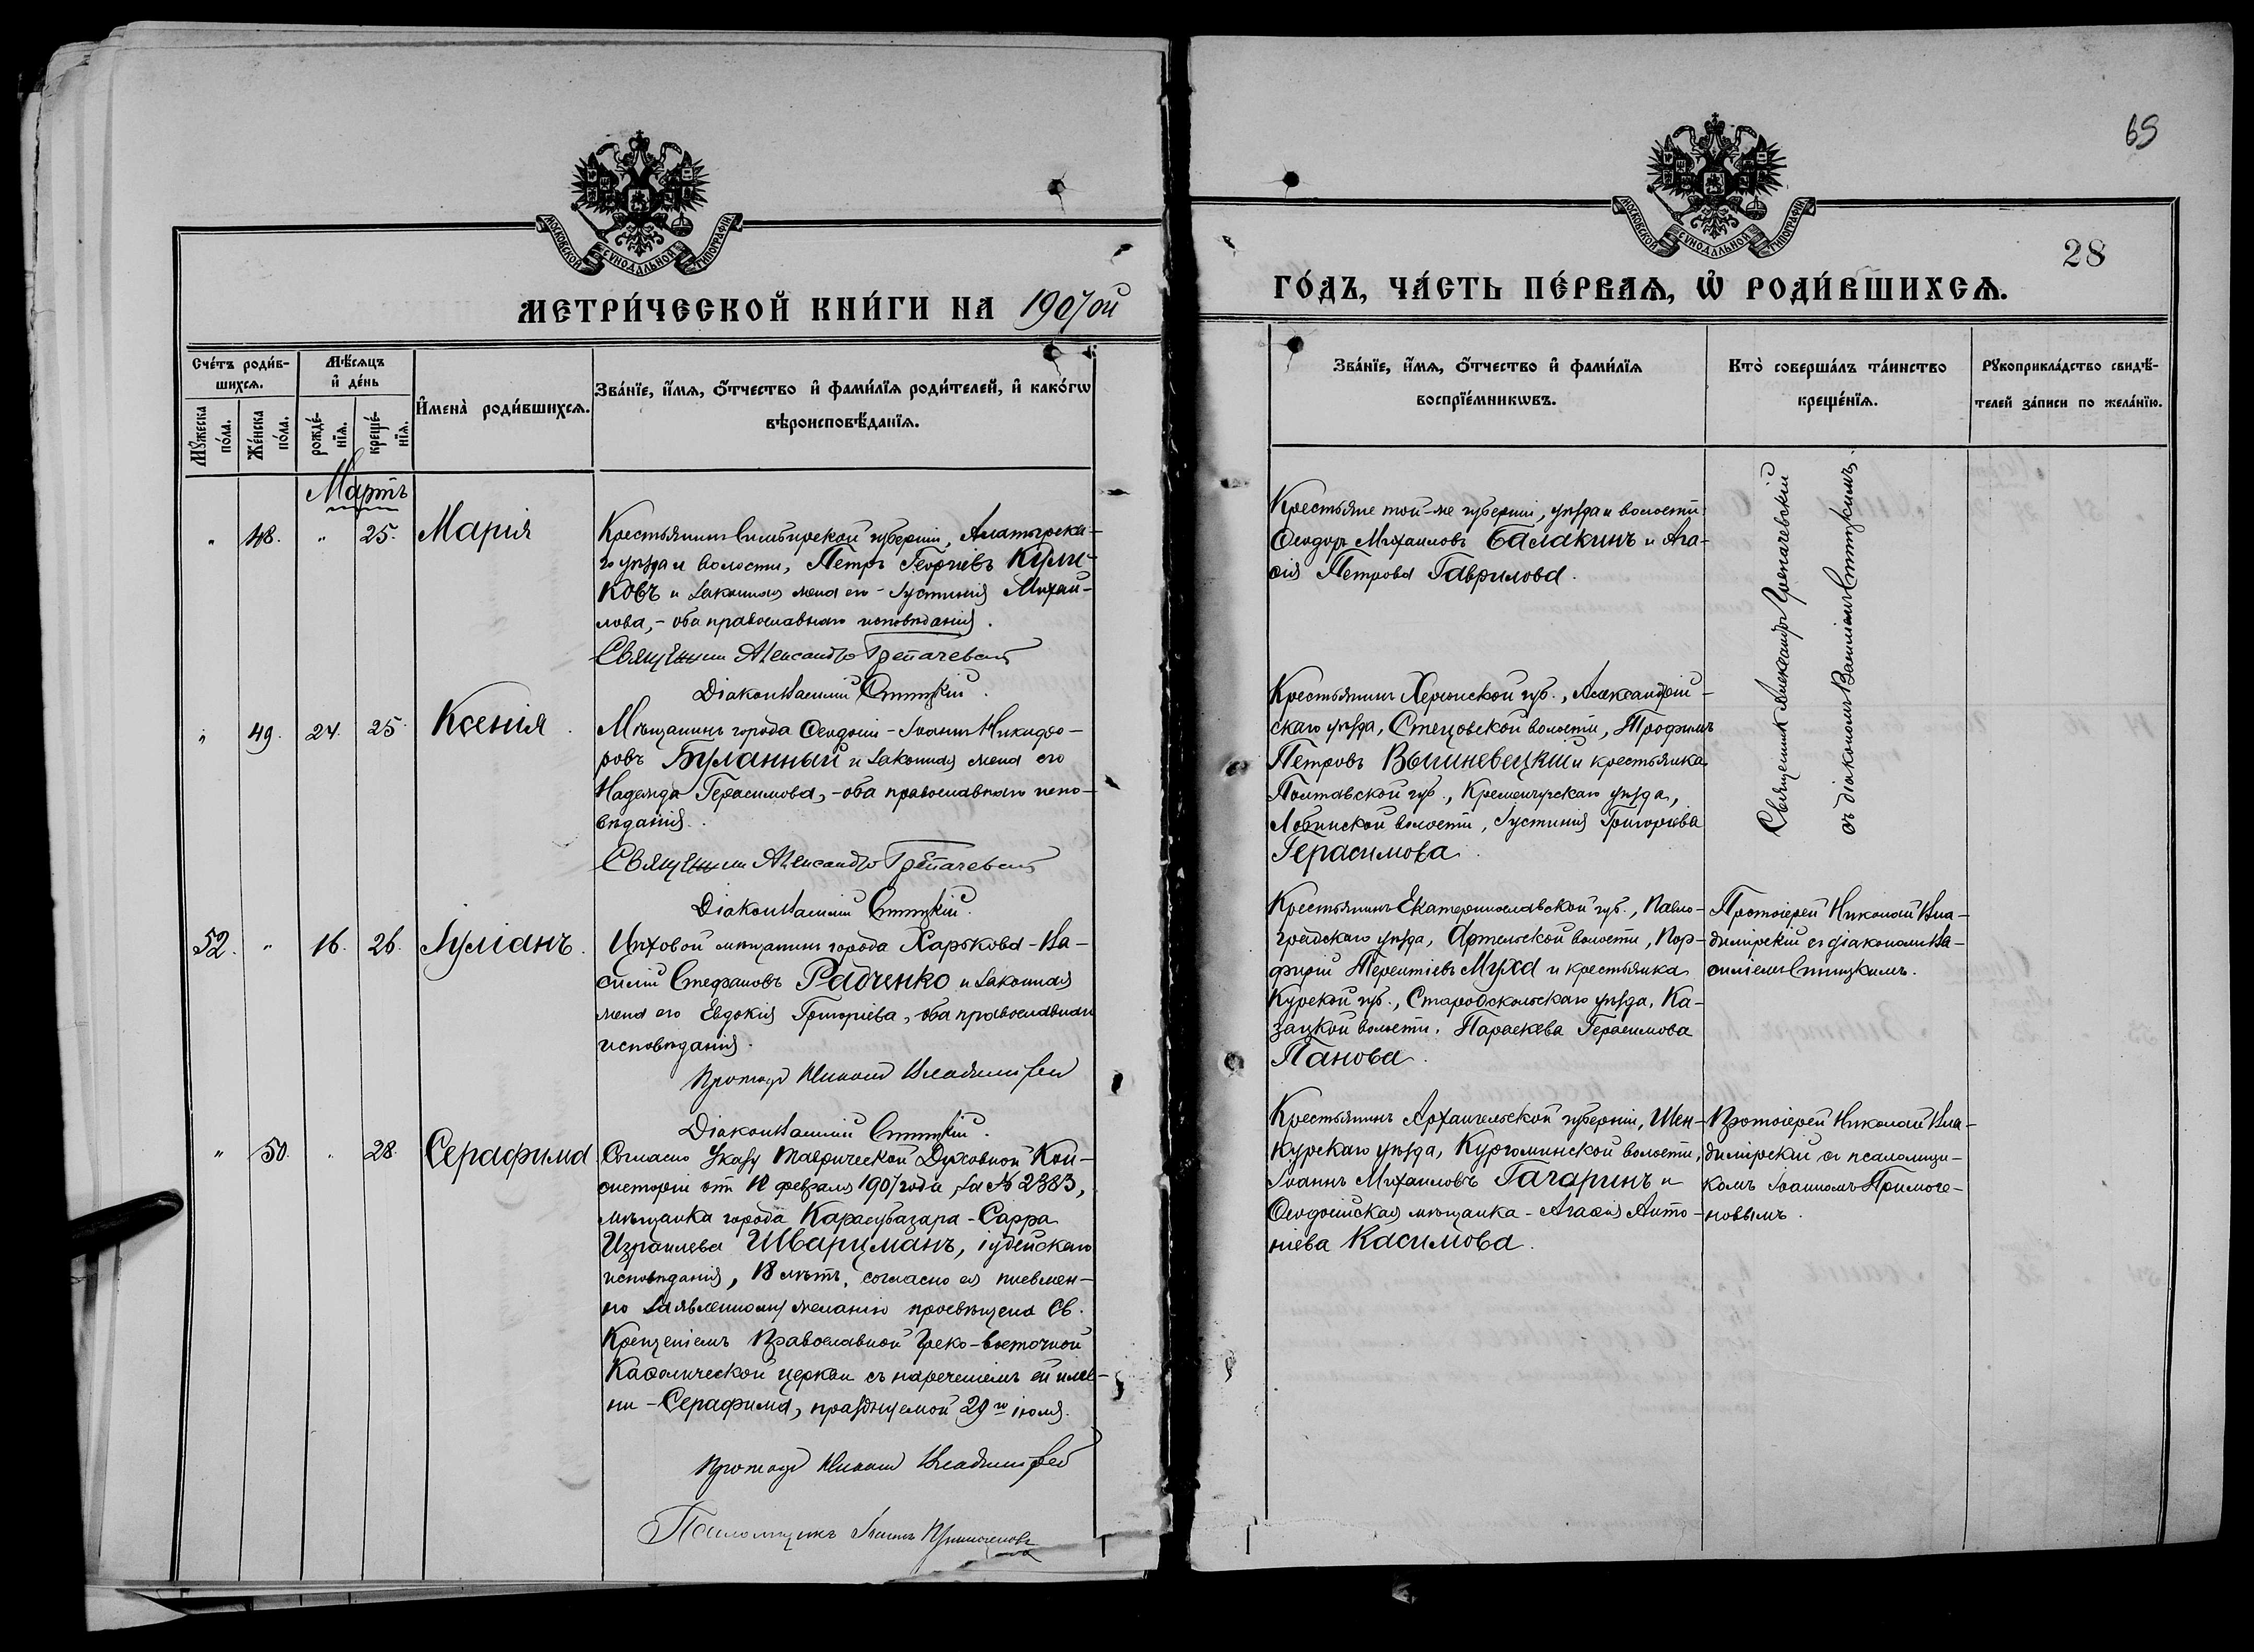 МОСКОВСКОЙ СѴНОДАЛЬНОЙ ТИПОГРАФІИ
МЕТРИ́ЧЕСКОЙ КНИ́ГИ НА 1907ой
Сче́тъ роди́в-
шихсѧ.
Мꙋ́жеска
по́ла.
Же́нска
по́ла.
Мѣ́сѧцъ
и҆ де́нь
рожде́-
нїѧ.
креще́-
нїѧ.
И҆мена̀ роди́вшихсѧ.
Зва́нїе, и҆́мѧ, ѻ҆́тчество и҆ фами́лїѧ роди́телей, и҆ како́гѡ
вѣроисповѣ́данїѧ.
Мартъ
" 48. " 25. Марія
Крестьянинъ Симбирской губерніи, Алатырска-
го уѣзда и волости, Петръ Георгіевъ Кули-
ковъ и законная жена его - Іустинія Михаи-
лова, - оба православнаго исповѣданія.
Священникъ Александръ Трепачевскій
Діаконъ Василій Ступицкій.
" 49. 24. 25. Ксенія.
Мѣщанинъ города Ѳеодосіи - Іоаннъ Никифо-
ровъ Буланный и законная жена его
Надежда Герасимова, - оба православнаго испо-
вѣданія.
Священникъ Александръ Трепачевскій
Діаконъ Василій Ступицкій.
52. " 16. 26. Іуліанъ.
Цѣховой мѣщанинъ города Харькова - Ва-
силій Стефановъ Радченко и законная
жена его Евдокія Григоріева, оба православнаго
исповѣданія.
Протоіер Николай Владимірскій
Діаконъ Василій Ступицкій.
" 50. " 28. Серафима
Согласно Указу Таврической Духовной Кон-
систоріи отъ 12 февраля 1907 года, за № 2383,
мѣщанка города Карасубазара - Сарра
Израилева Шварцманъ, іудейскаго
исповѣданія, 18 лѣтъ, согласно ея письмен-
но заявленному желанію просвѣщена Св.
Крещеніемъ Православной Греко-восточной
Каѳолической церкви съ нареченіемъ ей име-
ни - Серафима, празднуемой 29го іюля.
Протоіер Николай Владимірскій
Псаломщикъ Іоаннъ Примогеновъ
69
28
МОСКОВСКОЙ СѴНОДАЛЬНОЙ ТИПОГРАФІИ
ГО́ДЪ, ЧА́СТЬ ПЕ́РВАѦ, Ѡ҆ РОДИ́ВШИХСѦ.
Зва́нїе, и҆́мѧ, ѻ҆́тчество и҆ фами́лїѧ
воспрїе́мникѡвъ.
Кто̀ соверша́лъ та́инство
креще́нїѧ.
Рꙋкоприкла́дство свидѣ́-
телей за́писи по жела́нїю.
Крестьяне той-же губерніи, уѣзда и волости:
Ѳеодоръ Михаиловъ Балакинъ и Ага-
ѳія Петрова Гаврилова.
Священникъ Александръ Трепачевскій
съ діакономъ Василіемъ Ступицкимъ.
Крестьянинъ Херсонской губ., Александрій-
скаго уѣзда, Стецовской волости, Трофимъ
Петровъ Вышневецкій и крестьянка
Полтавской губ., Кременчугскаго уѣзда,
волости, Іустинія Григоріева
Герасимова.
Крестьянинъ Екатеринославской губ., Павло-
градскаго уѣзда, Артельской волости, Пор-
фирій Терентіевъ Муха и крестьянка
Курской губ., Старооскольскаго уѣзда, Ка-
зацкой волости, Параскева Герасимова
Панова.
Протоіерей Николай Вла-
димірскій съ діакономъ Ва-
силіемъ Ступицкимъ.
Крестьянинъ Архангельской губерніи, Шен-
курскаго уѣзда, Кургоминской волости,
Іоаннъ Михаиловъ Гагаринъ и
Ѳеодосійская мѣщанка - Агаѳія Анто-
ніева Касимова.
Протоіерей Николай Вла-
димірскій съ псаломщи-
комъ Іоанномъ Примоге-
новымъ.